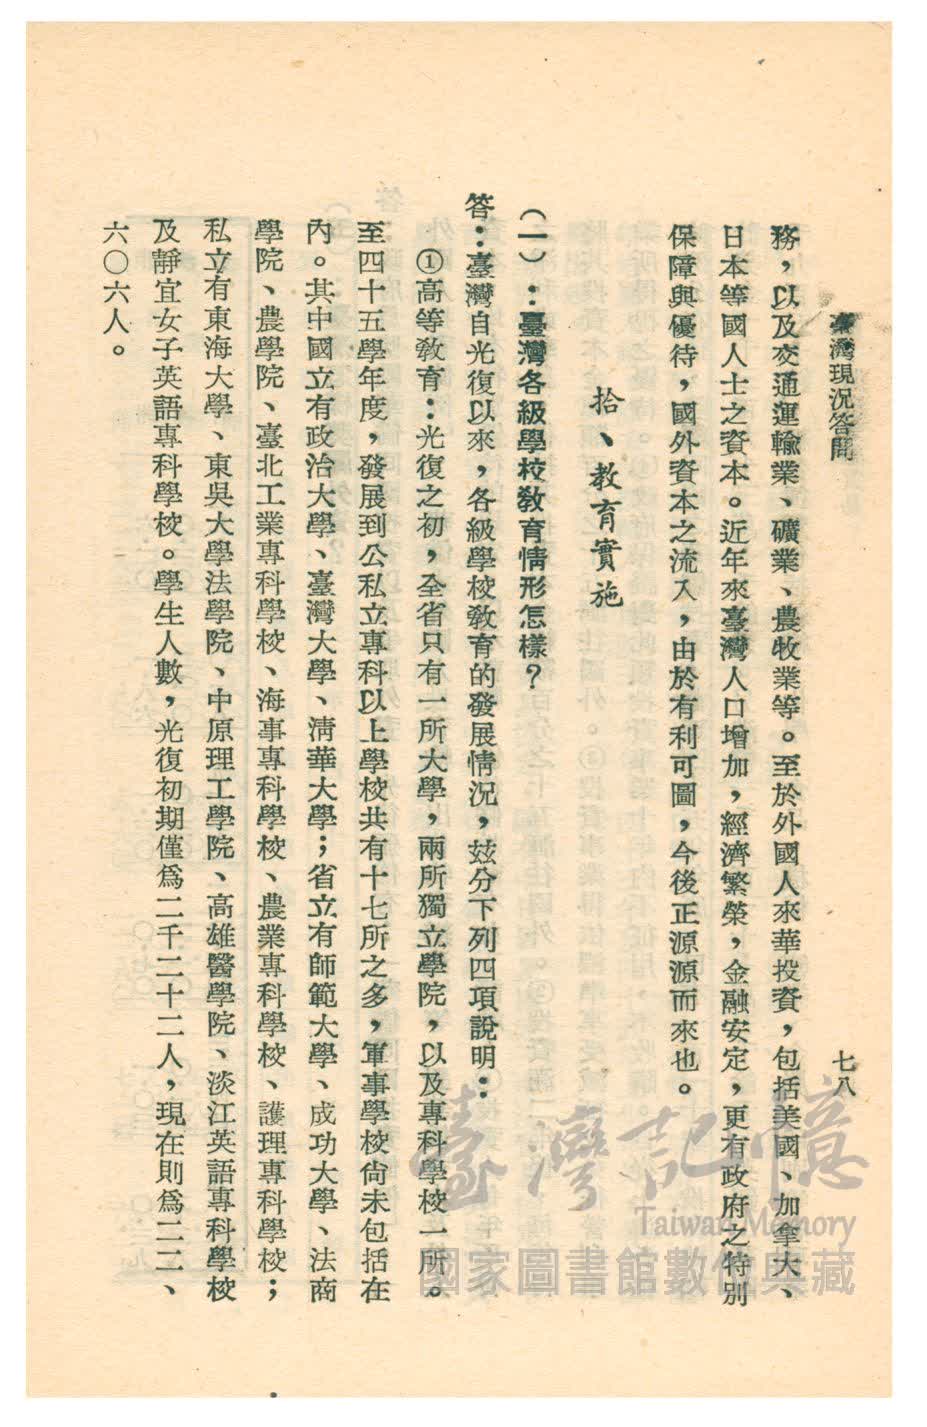 臺灣現況答問
七八
務，以及交通運輸業、礦業、農牧業等。至於外國人來華投資，包括美國、加拿大、
日本等國人士之資本。近年來臺灣人口增加，經濟繁榮，金融安定，更有政府之特別
保障與優待，國外資本之流入，由於有利可圖，今後正源源而來也。
拾、教育實施
（一）：臺灣各級學校教育情形怎樣？
答：臺灣自光復以來，各級學校教育的發展情况，玆分下列四項說明：
①高等教育：光復之初，全省只有一所大學，兩所獨立學院，以及專科學校一所。
至四十五學年度，發展到公私立專科以上學校共有十七所之多，軍事學校尙未包括在
內。其中國立有政治大學、臺灣大學、淸華大學；省立有師範大學、成功大學、法商
學院、農學院、臺北工業專科學校、海事專科學校、農業專科學校、護理專科學校；
私立有東海大學、東吳大學法學院、中原理工學院、高雄醫學院、淡江英語專科學校
及靜宜女子英語專科學校。學生人數，光復初期僅爲二千二十二人，現在則爲二二、
六〇六人。
臺灣記憶
Taiwan Memory
國家圖書館數位典藏